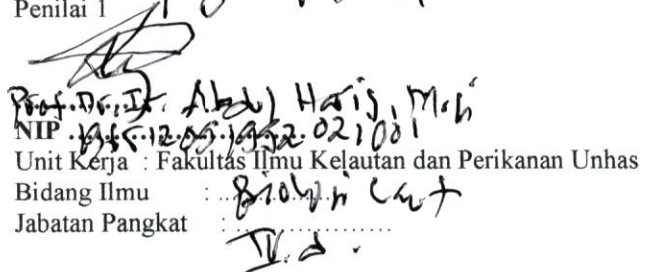 Penilai 1
Prof. Dr. Ir. Abdul Haris, M.Si
NIP
Unit Kerja : Fakultas Ilmu Kelautan dan Perikanan Unhas
Bidang Ilmu : Biologi Laut
Jabatan Pangkat :
IV.d.